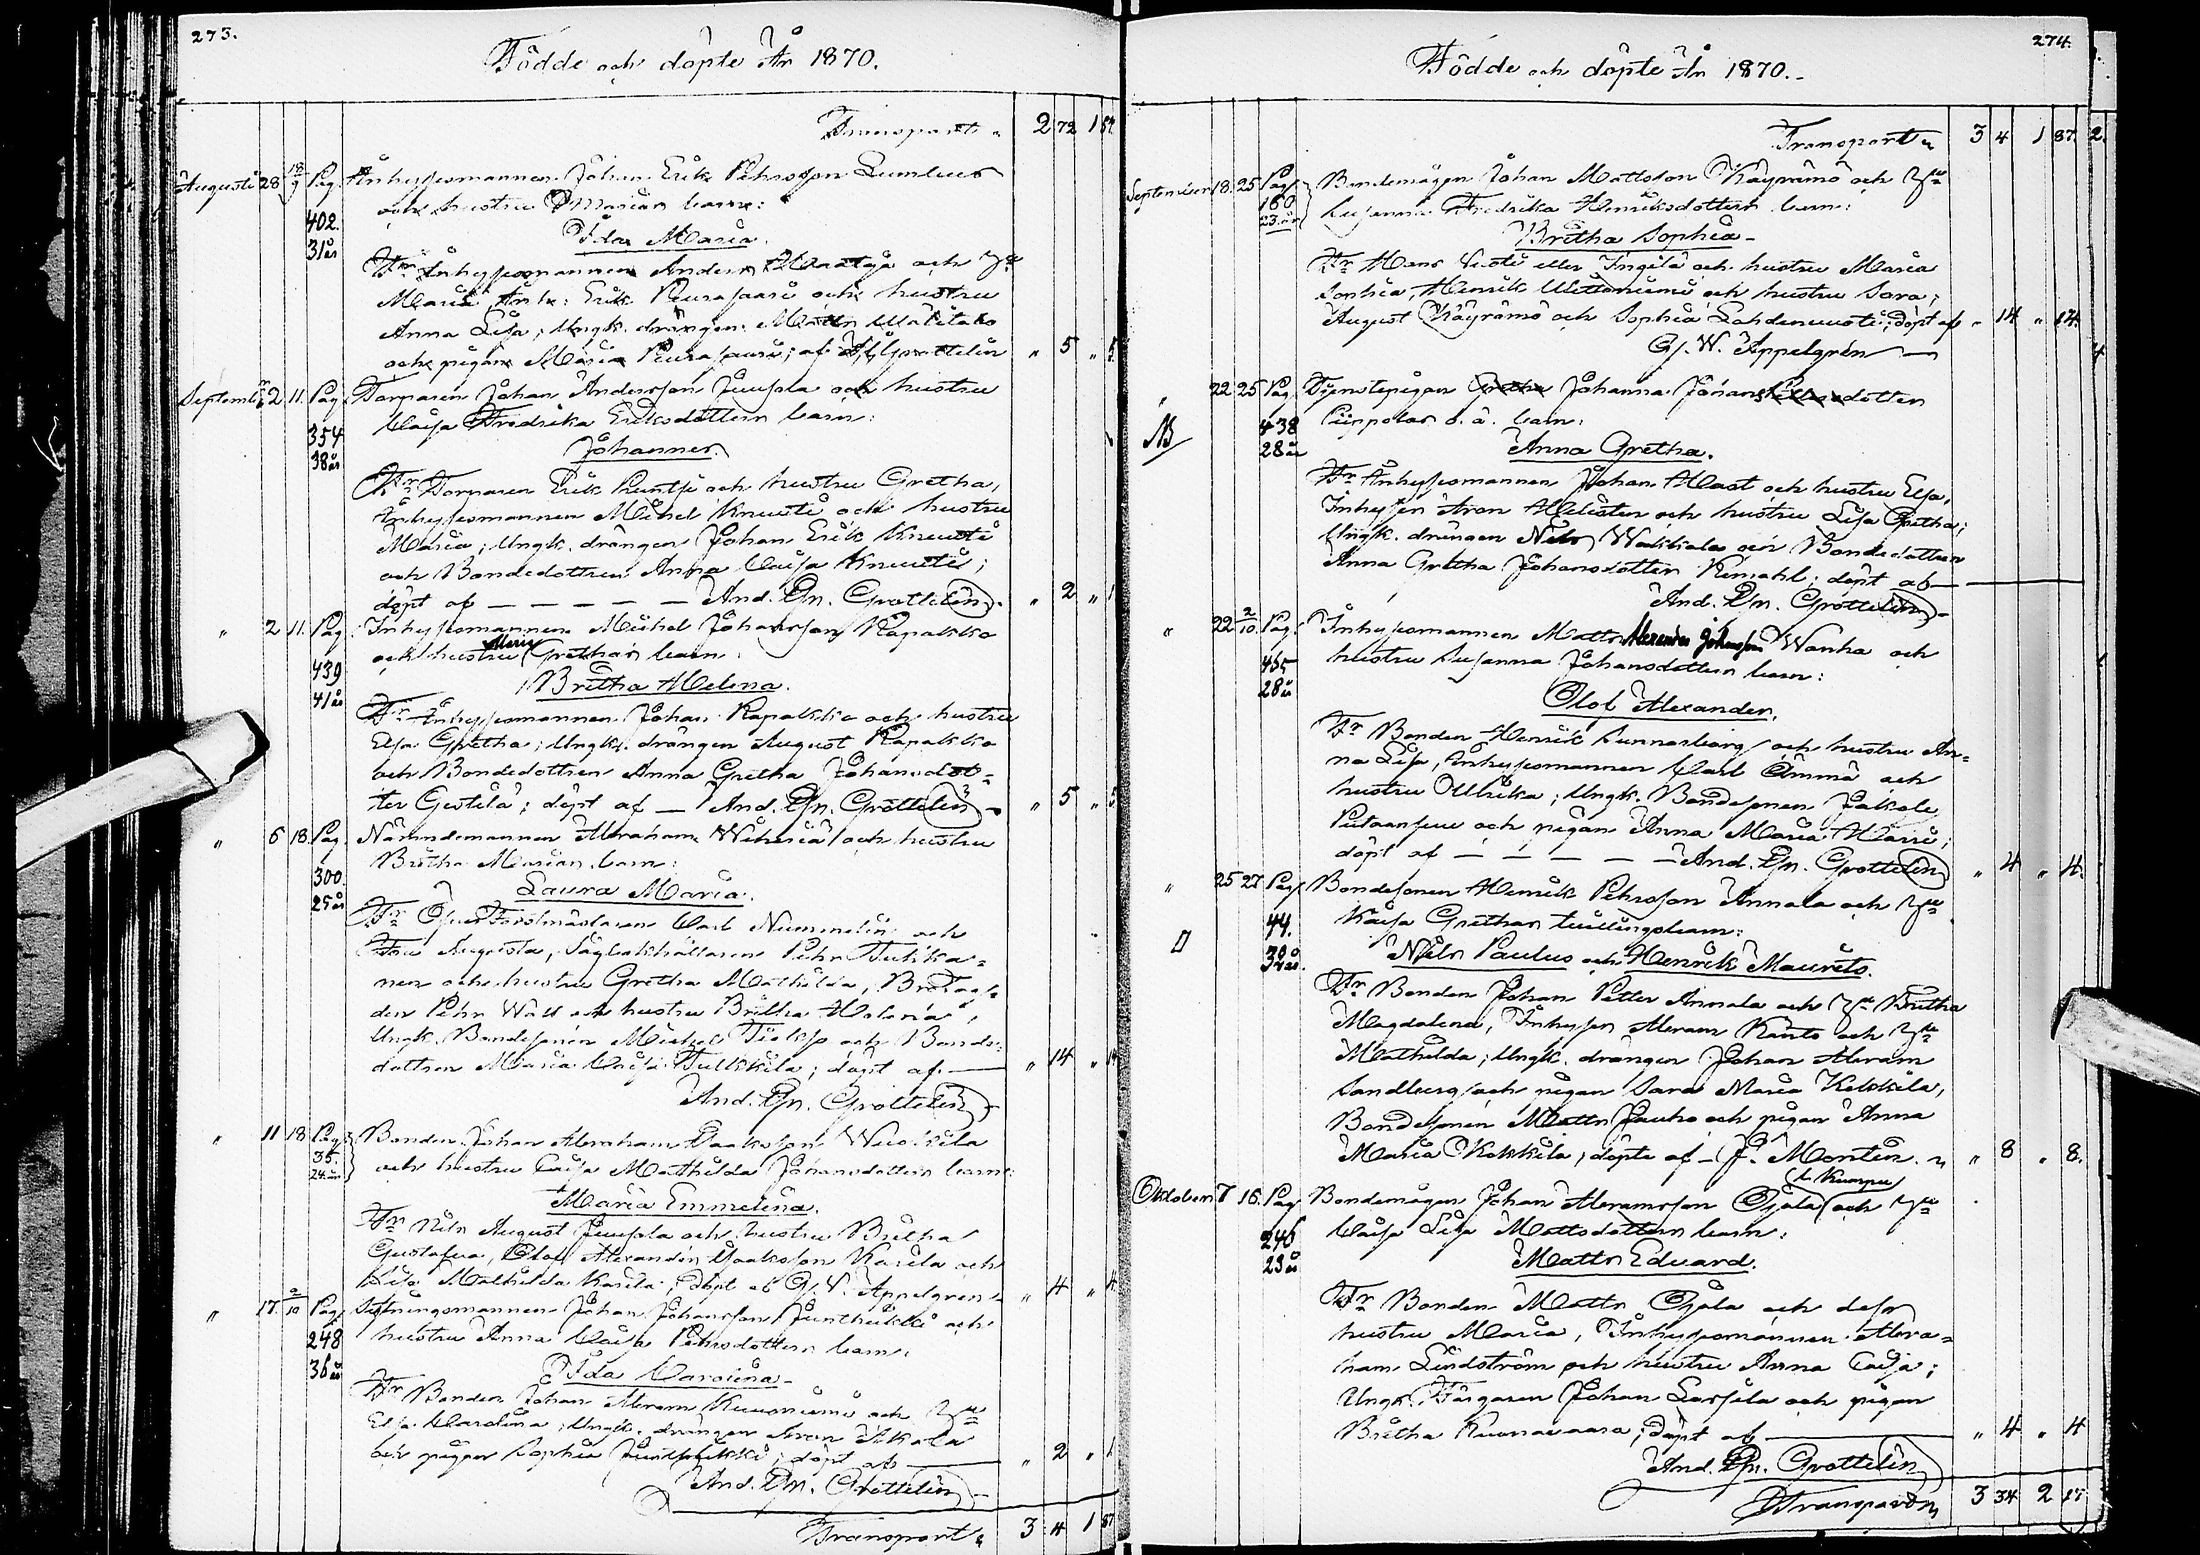 273.
Födde och döpte År 1870.
Transport " 2 72 1 57.
Augusti 28 18/9 Pag. Inhysesmannen Johan Erik Pehrsson Lumbus
402. och hustru Marias barn:
31 år Ida Maria.
Fr. Inhysesmannen Anders och Hu
Maria, Erik Peurasaari och hustru
Anna Lisa; Ungk. drängen Matts
och pigan Maria Peurasaari; af Grottelin " 5 "
September 2 11. Pag. Torparen Johan Andersson Juusola och hustru
354 Caisa Fredrika Eriksdotters barn:
38 år Johannes.
Fr. Torparen Erik Runtti och hustru Gretha,
Inhysesmannen Michel Knuuti och hustru
Maria; Ungk. drängen Johan Erik Knuuti
och Bondedottren Anna Caisa Knuuti;
döpt af — — — — — And. Gn. Grottelin. " 2 " 1
" 2 11. Pag. Inhysesmannen Michel Johansson Rapakko
439 och hustru Maria Grethas barn:
41 år Britha Helena.
Fr. Inhysesmannen Johan Rapakko och hustru
Elsa Gretha; Ungk. drängen August Rapakko
och Bondedottren Anna Gretha Johansdot=
ter Gestilä; döpt af — And. Gn. Grottelin " 5 " 5
" 6 18 Pag. Nämndemannen Abraham och hustru
300. Britha Marias barn:
25 år Laura Maria.
Fr. Öfver Forstmästaren Carl Nummelin och
Fru Augusta, Pehr Tuikka=
nen och hustru Gretha Mathilda,
Pehr Wäll och hustru Britha Helena,
Ungk. Bondesonen Michel och Bonde=
dottren Maria Caisa Tulkkila; döpt af — " 14 " 14
And. Gn. Grottelin
" 11 18 Pag. Bonden Johan Abraham Isaksson
35. och hustru Caisa Mathilda Johansdotters barn:
24 år Maria Emmelina.
Fr. Nils August Juusola och hustru Britha
Gustafva, Olof Alexander Isaksson Karila och
Lisa Mathilda Karila; döpt af G. W. Appelgren " 4 " 4
" 17. 2/10 Pag. Sytningsmannen Johan Johansson Juntikki och
248 hustru Anna Caisa Pehrsdotters barn:
36 år Ida Carolina.
Fr. Bonden Johan Abram Kuusniemi och Hu
Elsa Carolina; Ungk. drängen Aron Akola
och pigan Sophia Juntikki; döpt af — " 2 " 1
And. Gn. Grottelin
Transport " 3 4 1 87
274.
Födde och döpte År 1870.
Transport " 3 4 1 87. 2.
September 18. 25 Pag. Bondemågen Johan Mattsson Käyrämö och Hu
160 Susanna Fredrika Henriksdotters barn:
23. år Britha Sophia
Fr. Hans eller Ingilä och hustru Maria
Sophia, Henrik och hustru Sara;
August Käyrämö och Sophia Lahdenuusti; döpt af " 14 " 14.
G. W. Appelgrén —
" 22 25 Pag. Tjenstepigan Johanna Johansdotter
NB 438 Piippolas o. ä. barn:
28 år Anna Gretha.
Fr. Inhysesmannen Johan Hast och hustru Elsa,
Inhysen Aron och hustru Lisa Gretha;
Ungk. drängen Nils och Bondedottren
Anna Gretha Johansdotter; döpt af —
And. Gn. Grottelin
" 22 2/10 Pag. Inhysesmannen Matts Alexander Johansson Wanha och
465 hustru Susanna Johansdotters barn:
28 år Olof Alexander.
Fr. Bonden Henrik Sunnarborg och hustru An=
na Lisa, Inhysesmannen Carl Ämmä och
hustru Ullrika; Ungk. Bondesonen Jakob
och pigan Anna Maria Harri;
döpt af — — — — — And. Gn. Grottelin " 4 " 4.
" 25 27 Pag. Bondesonen Henrik Pehrsson Annala och Hu
44. Kaisa Grethas tvillingsbarn:
30 år Nils Paulus och Henrik Maurits.
Fr. Bonden Johan Petter Annala och Hu Britha
Magdalena, Inhysen Abram Kanto och Hu
Mathilda; Ungk. drängen Johan Abram
Sandberg och pigan Sara Maria Kokkila,
Bondesonen Matts Jauho och pigan Anna
Maria Kokkila; döpte af J. Montin " 8 " 8.
Oktober 7 16. Pag. Bondemågen Johan Abramsson Ojala och Hu
246 Caisa Lisa Mattsdotters barn:
23 år Matts Eduard.
Fr. Bonden Matts Ojala och dess
hustru Maria, Inhysesmannen Abra=
ham Lindström och hustru Anna Caisa;
Ungk. Färgaren Johan och pigan
Britha Kuonavaara; döpt af — " 4 " 4
And. Gn. Grottelin
Transport " 3 34 2